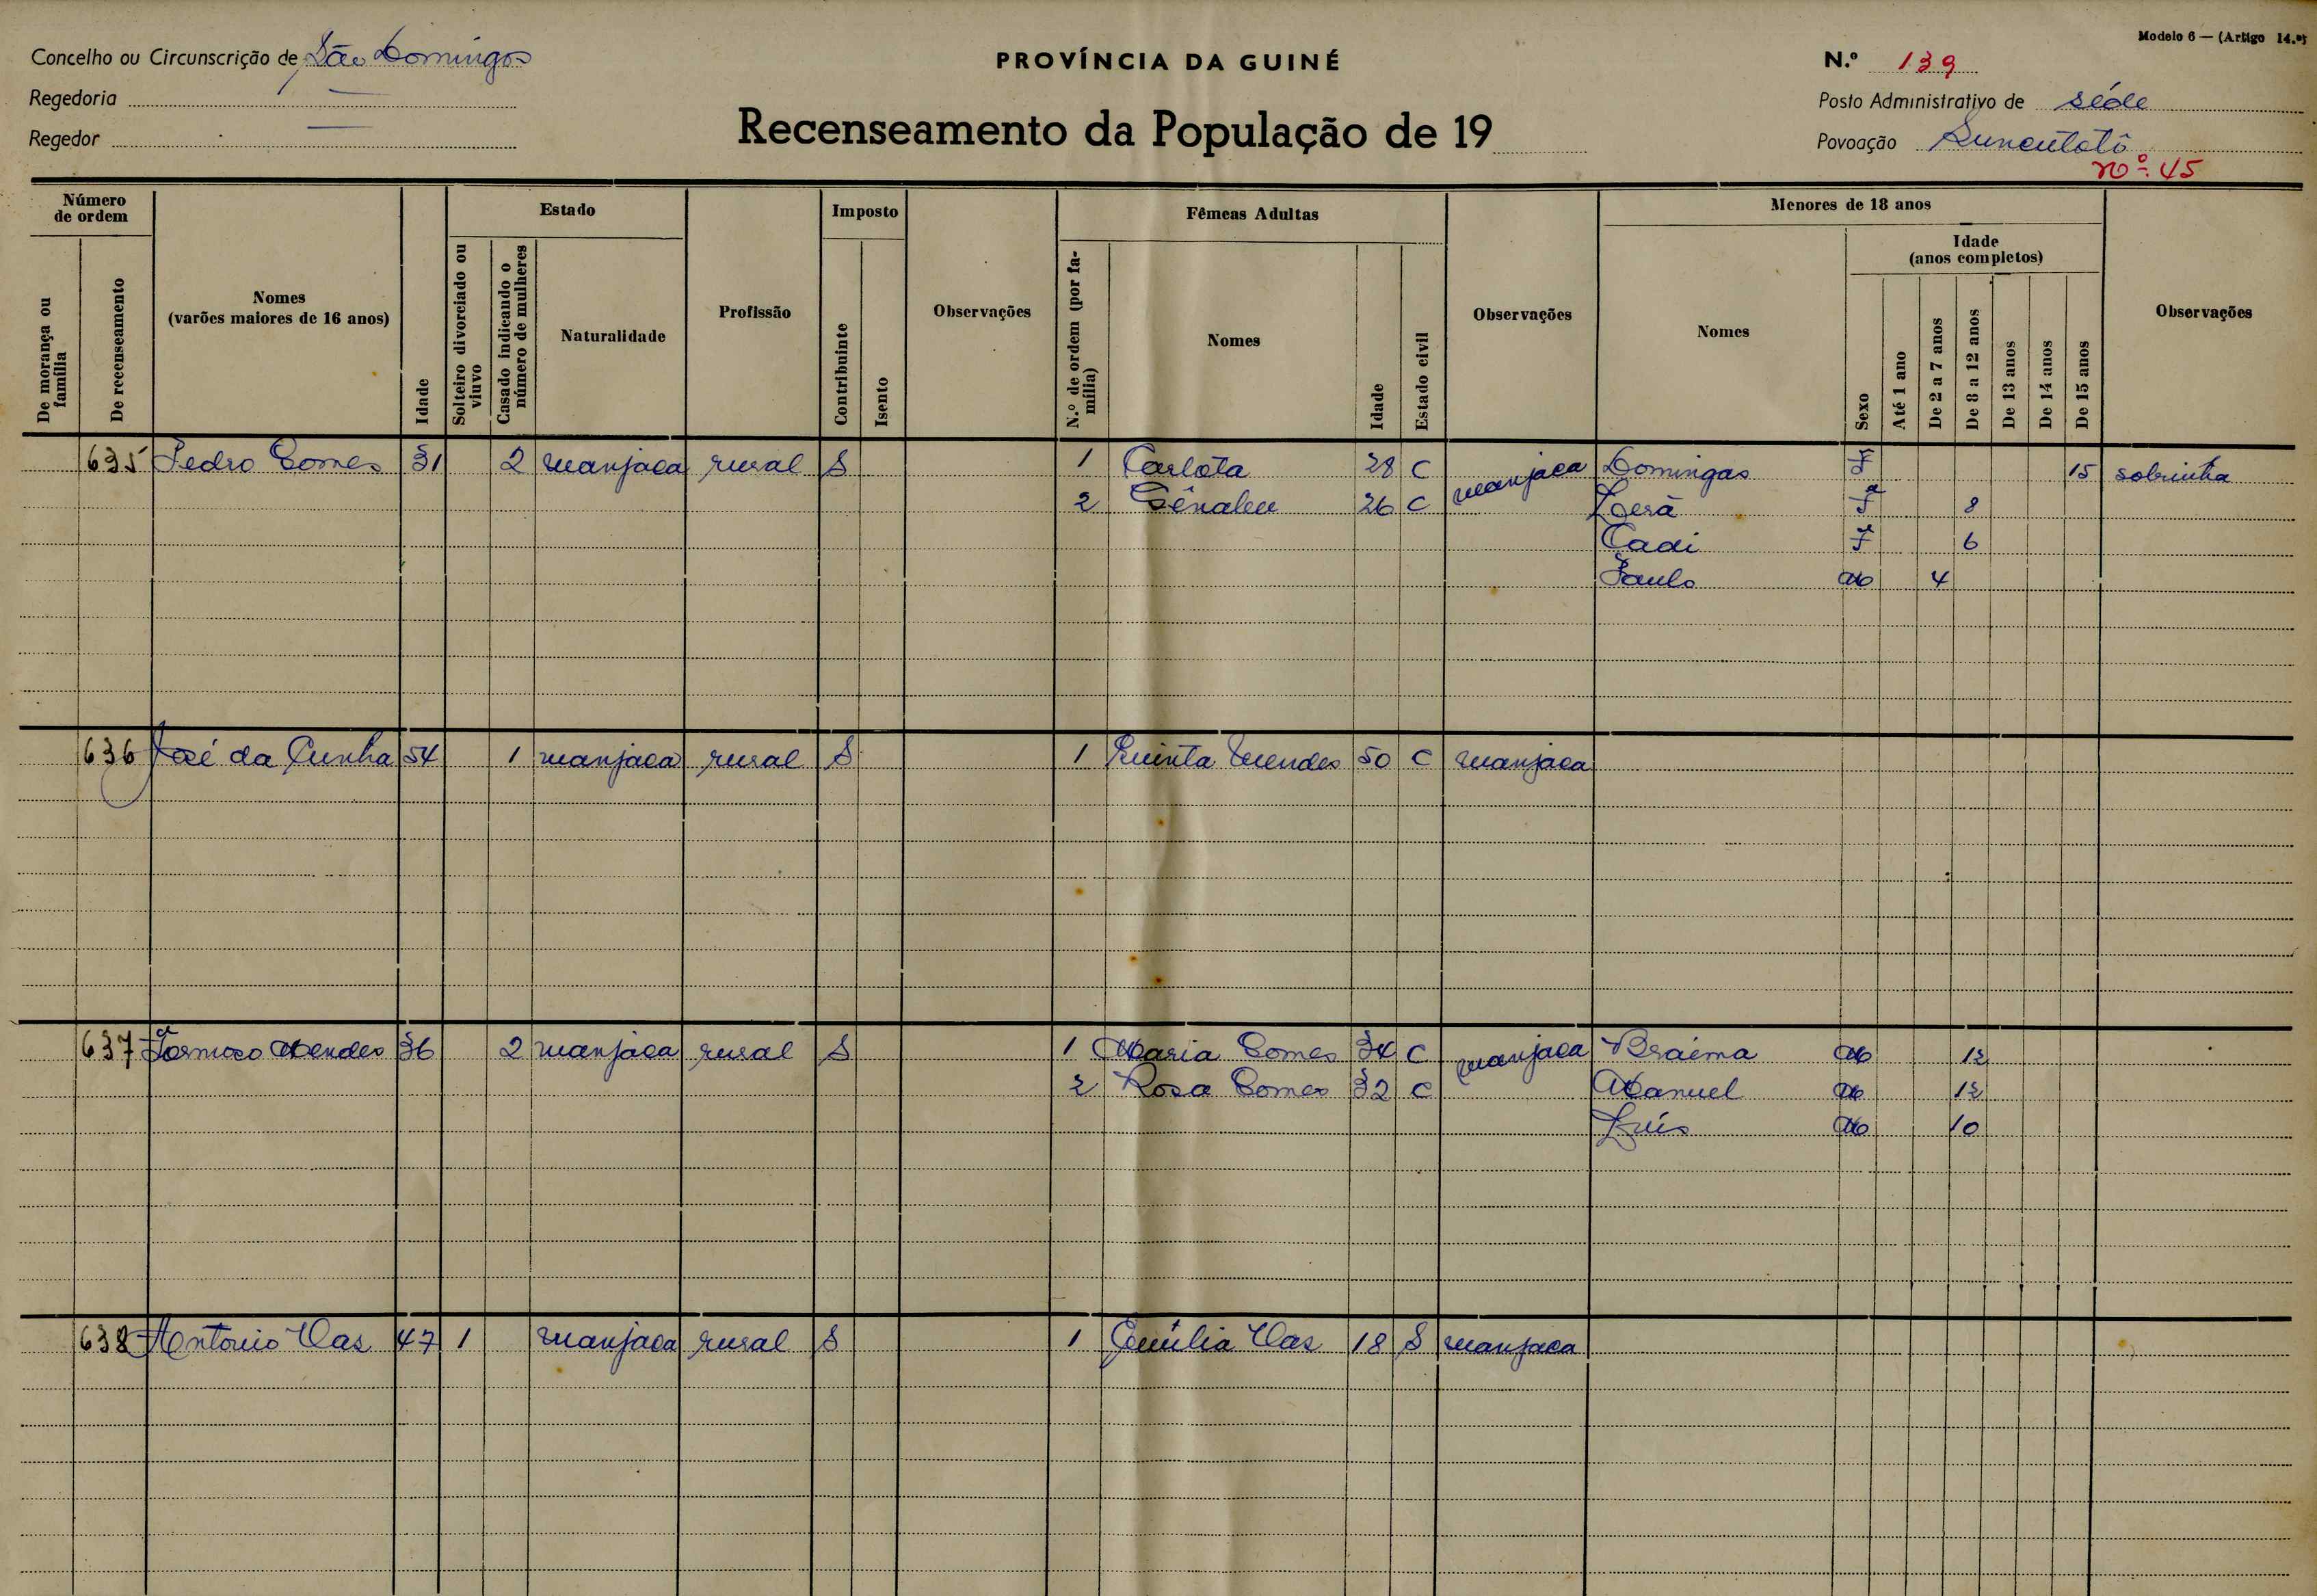 Modelo 6 — (Artigo 14.º)
Concelho ou Circunscrição de São Domingos
PROVÍNCIA DA GUINÉ
N.º 139
Regedoria —
Recenseamento da População de 19
Posto Administrativo de séde
Regedor —
Povoação
nº. 45
Número de ordem
De morança ou família
De recenseamento
Nomes (varões maiores de 16 anos)
Idade
Estado
Solteiro divorciado ou viuvo
Casado indicando o número de mulheres
Naturalidade
Profissão
Imposto
Contribuinte
Isento
Observações
Fêmeas Adultas
N.º de ordem (por família)
Nomes
Idade
Estado civil
Observações
Menores de 18 anos
Nomes
Sexo
Idade (anos completos)
Até 1 ano
De 2 a 7 anos
De 8 a 12 anos
De 13 anos
De 14 anos
De 15 anos
Observações
635 Pedro Gomes 31 2 manjaca rural S 1 Carlota 28 C manjaca Domingas F 15 sobrinha
2 26 C F 8
Cadi F 6
Paulo M 4
636 José da Cunha 54 1 manjaca rural S 1 Quinta Mendes 50 C manjaca
637 Formoso Mendes 36 2 manjaca rural S 1 Maria Gomes 34 C manjaca Braima M 12
2 Rosa Gomes 32 C Manuel M 12
Luís M 10
638 Antonio Vaz 47 1 manjaca rural S 1 Emília Vaz 18 S manjaca